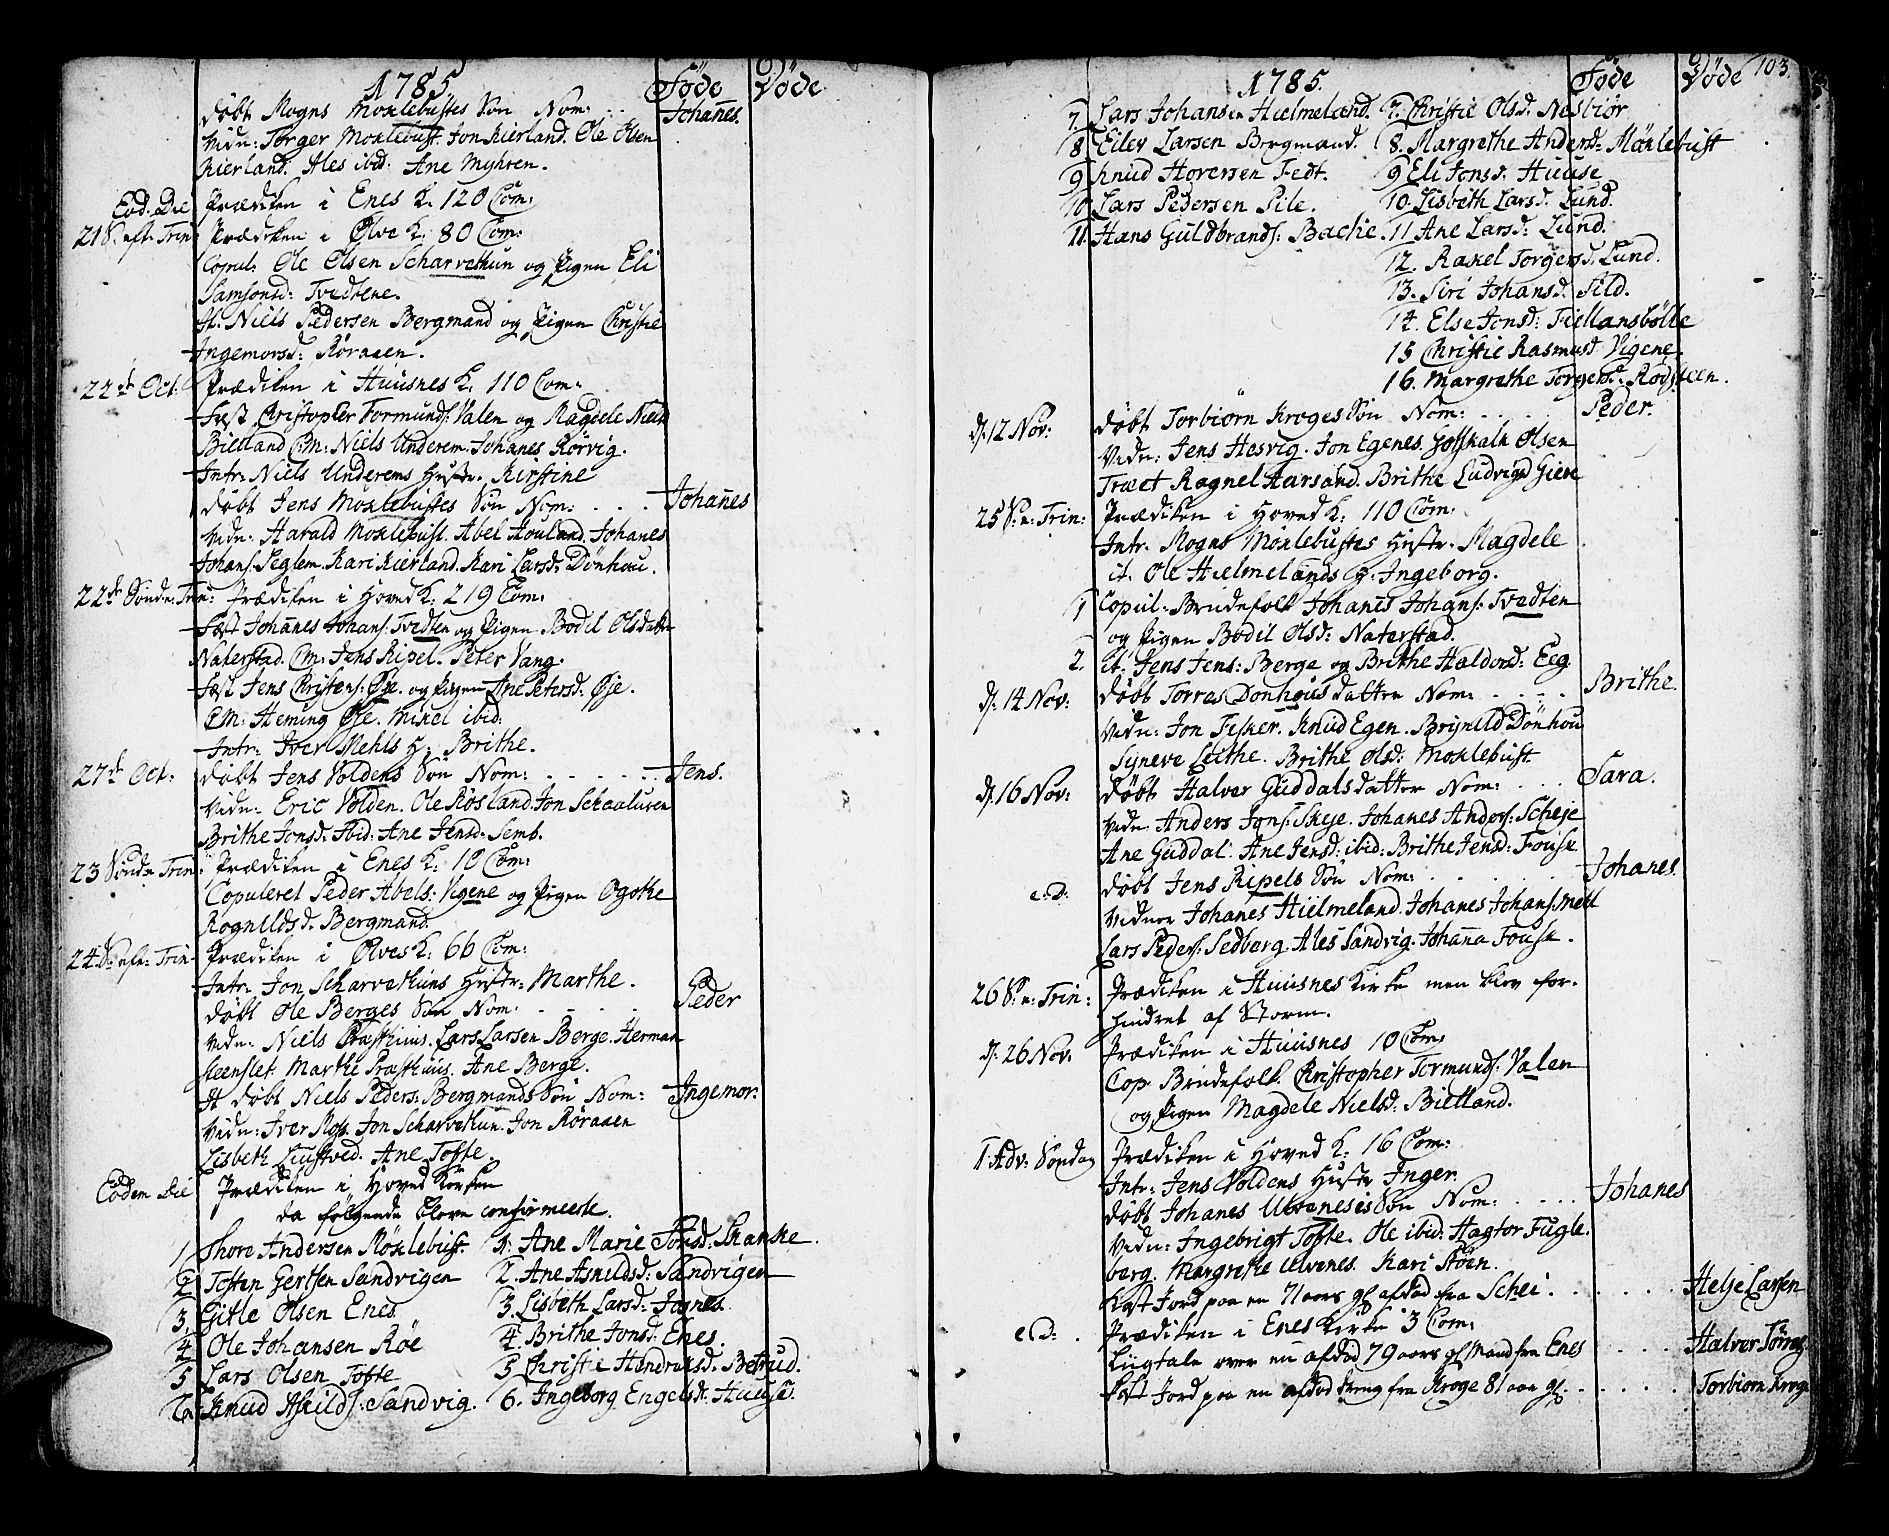 1785. Föde Döde
döbt Mogns Moxlebustes Sön Nom: . . Johañes.
Vidn: Torger Moxlebust. Jon Kierland. Ole Olsen
Kierland. Ales ibd: Ane Myhren.
Eod. Die Prædiken i Enes K. 120 Com:
21 S. eft. Trin: Prædiken i Ølve K: 80 Com:
Copul: Ole Olsen Scharvethun og Pigen Eli
Samsonsd: Tvedtene.
It. Niels Pedersen Bergmand og Pigen Christie
Ingemorsd: Röraaen.
22d Oct. Prædiken i Huusnes K. 110 Com:
Fæst Christopher Tormunds. Valen og Magdele Niels
Bielland CM: Niels Underem. Johanes Rörvig.
Intr: Niels Underems Hustr. Kirstine
döbt Jens Moxlebustes Sön Nom: . . . Johañes
Vidn: Harald Moxlebust. Abel Houland. Johanes
Johans. Seglem. Kari Kierland. Kari Larsd: Dönhou.
22de Sönd. Trin: Prædiken i Hoved K: 219 Com:
Fæst Johañes Johans: Tvedten og Pigen Bodil Olsdatter
Naterstad. CM. Jens Ripel. Peter Vang.
Fæst Jens Christens: Øje. og Pigen Ane Petersd: Øje.
CM: Heming Øje. Mikel ibid:
Intr: Iver Mehls H: Brithe.
27d Oct: döbt Jens Voldens Sön Nom: . . . . . Jens.
Vidn: Eric Volden. Ole Røsland. Jon Schaaluren
Brithe Jonsd: Ibid: Ane Jensd: Semb.
23 Sönd. Trin: Prædiken i Enes K: 10 Com:
Copuleret Peder Abels: Vigene og Pigen Ogothe
Rognildsd. Bergmand.
24. S. eft. Trin. Prædiken i Ølves K: 66 Com:
Intr: Jon Scharvethuns Hustr: Marthe.
döbt Ole Berges Sön Nom: . . . . Peder
Vidn: Niels Præsthuus. Lars Larsen Berge. Herman
Steenslet. Marthe Præsthuus. Ane Berge.
It döbt Niels Peders: Bergmands Sön Nom: Ingemor.
Vidn: Iver Ross. Jon Scharvethun. Jon Röraaen
Lisbeth Liustved. Ane Tofte.
Eodem Die Prædiken i Hoved Kirken
da følgende bleve confirmerede.
1 Thore Andersen Möxlebust. 1. Ane Marie Tonsd: Skanke.
2 Tosten Giertsen Sandvigen 2. Ane Asmildsd: Sandvigen
3 Gitle Olsen Enes 3. Lisbeth Larsd:
4 Ole Johansen Röe 4. Brithe Jonsd: Enes.
5 Lars Olsen Tofte 5 Christie Hendriksd: Betrud.
6 Knud Askilds. Sandvig. 6. Ingeborg Engelsdr: Huuse.
1785. Föde Döde 103.
7. Lars Johansen Hielmeland. 7. Christie Olsd. Nesbiör
8 Eilev Larsen Bergmand. 8. Margrethe Andersd: Möxlebust
9 Knud Hoversen Fedt. 9 Eli Jonsd. Huuse
10 Lars Pedersen Pile. 10. Lisbeth Larsd. Lund.
11. Hans Guldbrands: Backe. 11 Ane Larsd: Lund.
12. Rakel Torgersd. Lund.
13. Siri Johansd. Sild.
14. Else Jonsd: Fiellansbölle
15 Christie Rasmusd Vigene.
16. Margrethe Torgersd: Rodsteen.
d. 12 Nov: döbt Torbiörn Kroges Sön Nom: . . . . Peder.
Vidn: Jens Hesvig. Jon Egenes. Gotskalk Olsen
Træet Ragnel Aarsand. Brithe Ludvigsd Giere
25 S. e: Trin: Prædiken i Hoved K: 110 Com:
Intr. Mogns Moxlebustes Hustr. Magdele
it. Ole Hielmelands H: Ingeborg.
1 Copul: Brudefolk Johañes Johans: Tvedten
og Pigen Bodil Olsd: Naterstad.
2. it. Jens Jens: Berge og Brithe Haldorsd: Eeg
d. 14 Nov: döbt Torres Dönhous datter Nom: . . . . Brithe.
Vidn: Jon Fisker. Knud Egen. Brynild Dönhou
Syneve Leithe. Brithe Olsd: Moxlebust
d. 16 Nov: döbt Halver Guddals datter Nom: . . . Sara.
Vidn: Anders Jons: Skeje. Johanes Anders: Scheje
Ane Guddal. Ane Jensd: ibid: Brithe Jensd: Fouske
e.D: döbt Jens Ripels Sön Nom: . . . . Johañes.
Vidner Johanes Hielmeland. Johanes Johans. Mell
Lars Peders. Sedberg. Ales Sandvig. Johana Fouske.
26 S. e: Trin: Prædiken i Huusnes Kirke men blev for-
hindret af Storm.
d. 26 Nov. Prædiken i Huusnes 10 Com:
Cop. Brudefolk. Christopher Tormunds. Valen
og Pigen Magdele Nielsd: Bielland.
1. Adv: Söndag Prædiken i Hoved K. 16 Com:
Intr: Jens Voldens Hustr Inger.
döbt Johanes Ulvenesis Sön Nom: . . . . Johañes
Vidn: Ingebrigt Tofte. Ole ibid: Hagtor Fugle-
berg. Margrethe Ulvenes. Kari Stöen.
Kast Jord paa en 71 aars gl. afdöd fra Schei . . . . . . Helje Larsen
e.D: Prædiken i Enes Kirke 3 Com:
Liigtale over en afdöd 79 aars gl. Mand fra Enes . . . . Halver Törres
Kast Jord paa en afdöd Dreng fra Kroge 8 1/2 aar gl. . . . . . Torbiorn Kroge